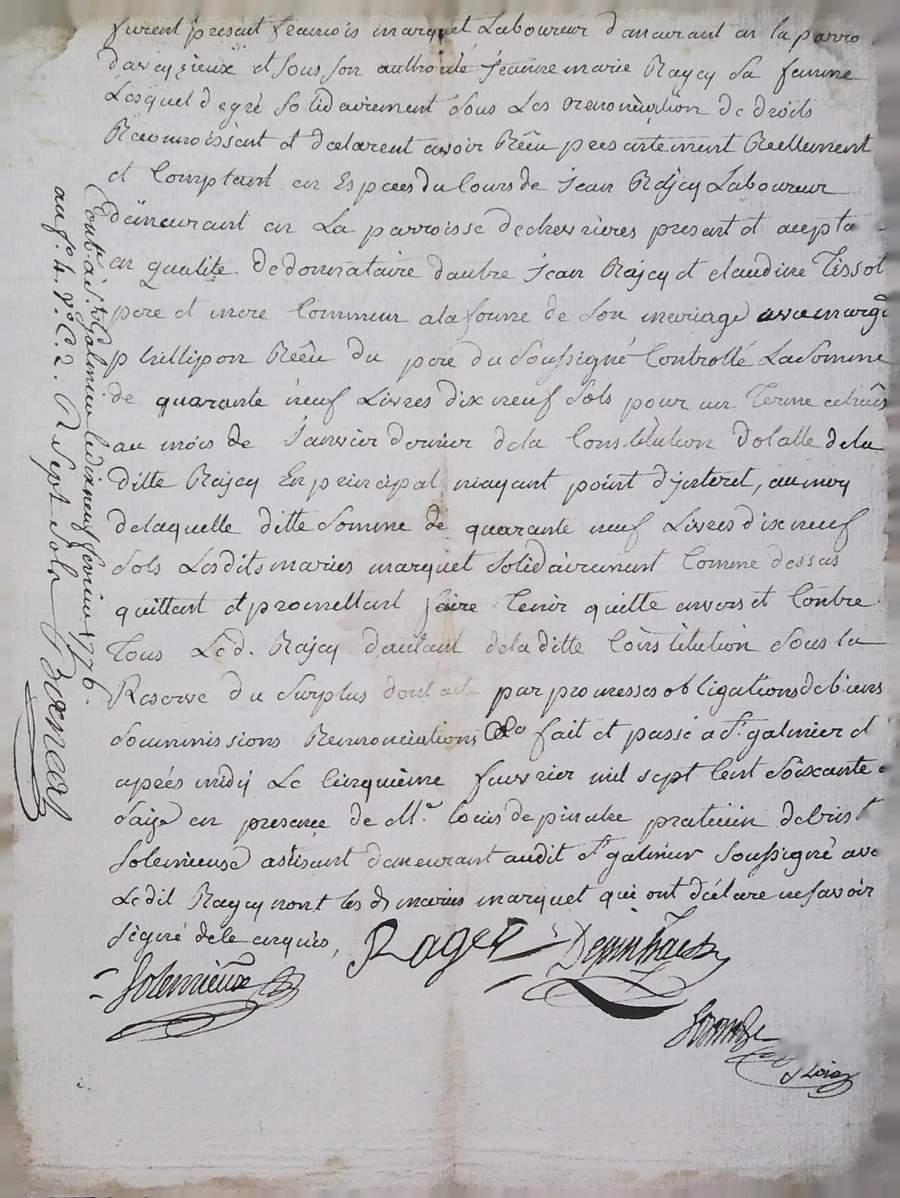 furent présent francois marquet Laboureur demeurant en la parro
daveyzieux et sous son authorité jeanne marie Rajey sa femme
Lesquel degré solidairement sous Les renonciation de droits
Reconnoissent et déclarent avoir Rëëu presantement Réellement
et Comptant en Espèces du Cours de jean Rajey Laboureur
demeurant en La parroisse de chevrières présant et acepta
en qualité de donnataire dautre jean Rajey et claudine Tissot
père et mere Commeur a la forme de son mariage avec margu
phillipon Rëëu du père du soussigné Controllé La somme
de quarante neuf Livres dix neuf sols pour un Terme
au mois de janvier dernier de la Constitution dotalle de la
ditte Rajey En principal nayant point d'jnteret, au moy
de laquelle ditte somme de quarante neuf Livres dix neuf
sols Lesdits maries marquet solidairement Comme dessus
quittent et promettent faire Tenir quitte envers et Contre
Tous Led. Rajey dautant de la ditte Constitution sous la
Reserve du surplus dont acte par promesses obligations de biens
soummissions Renonciations &a fait et passé a St. galmier et
après midy Le Cinquième feuvrier mil sept Cent soixante
saize en presence de Me. Louis de praticien de
solemieuse demeurant audit St galmier soussigné avec
Ledit Rajey nont les d maries marquet qui ont déclaré ne savoir
signé de ce enquis,
Solemieux Ragey
Contr. à St. Galmier le dix neuf février 1776.
au fo. 4. Vo. C. 2. R sept sols